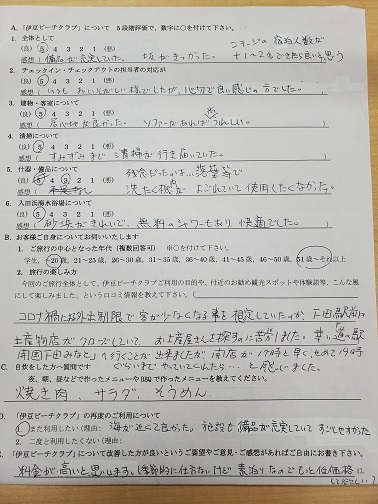 A. 「伊豆ビーチクラブ」について 5段階評価で、数字に○を付けて下さい。
1. 全体として
(良) 5 4 3 2 1 (悪)
感想( 備品が充実していた。 坂がきつかった。
宿泊人数が
+1~2名できたら良いと思う
2. チェックイン・チェックアウトの担当者の対応が
(良) 5 4 3 2 1 (悪)
感想( いつも おいそがしい様でしたが、心切で良い感じの方でした。 )
3. 建物・客室について
(良) 5 4 3 2 1 (悪)
感想( 居心地が良かった。 ソファーがあればうれしい。 )
4. 清掃について
(良) 5 4 3 2 1 (悪)
感想( すみずみまで 清掃が行き届いていた。 )
5. 什器・備品について
(良) 5 4 3 2 1 (悪)
洗たく機が よごれていて使用したくなかった。
6. 入田浜海水浴場について
(良) 5 4 3 2 1 (悪)
感想( 砂浜がきれいで、無料のシャワーもあり 快適でした。 )
B. お客様ご自身についてお伺いいたします
1. ご旅行の中心となった年代(複数回答可) ※○を付けて下さい。
学生, ~20歳, 21~25歳, 26~30歳, 31~35歳, 36~40歳, 41~45歳, 46~50歳, 51歳~それ以上
2. 旅行の楽しみ方
今回のご旅行全体として、伊豆ビーチクラブご利用の目的や、付近のお勧め観光スポットや体験談等、こんな風
にして楽しみました、という口コミ情報を教えて下さい。
コロナ禍による外出制限で客が少なくなる事を想定していたのか、下田駅前の
土産物店がクローズしていて お土産屋さんを探すのに苦労しました。幸い道の駅
開国下田みなとへ行くことが出来ましたが 閉店が17時と早く、せめて19時
ぐらいまでやっていてくれたら…と感じました。
C. 自炊をした方へ質問です
夜、朝、昼などで作ったメニューやBBQで作ったメニューを教えてください。
焼き肉、サラダ、そうめん
D. 「伊豆ビーチクラブ」の再度のご利用について
1. また利用したい(理由: 海が近くて良かった。施設も備品が充実していてすごしやすかった
2. 二度と利用したくない(理由:
「伊豆ビーチクラブ」について改善した方が良いというご要望やご意見・ご感想があればご自由にお書き下さい。
料金が高いと思います。(季節的に仕方ないけど 素泊りなのでもっと低価格に
してほしい!)